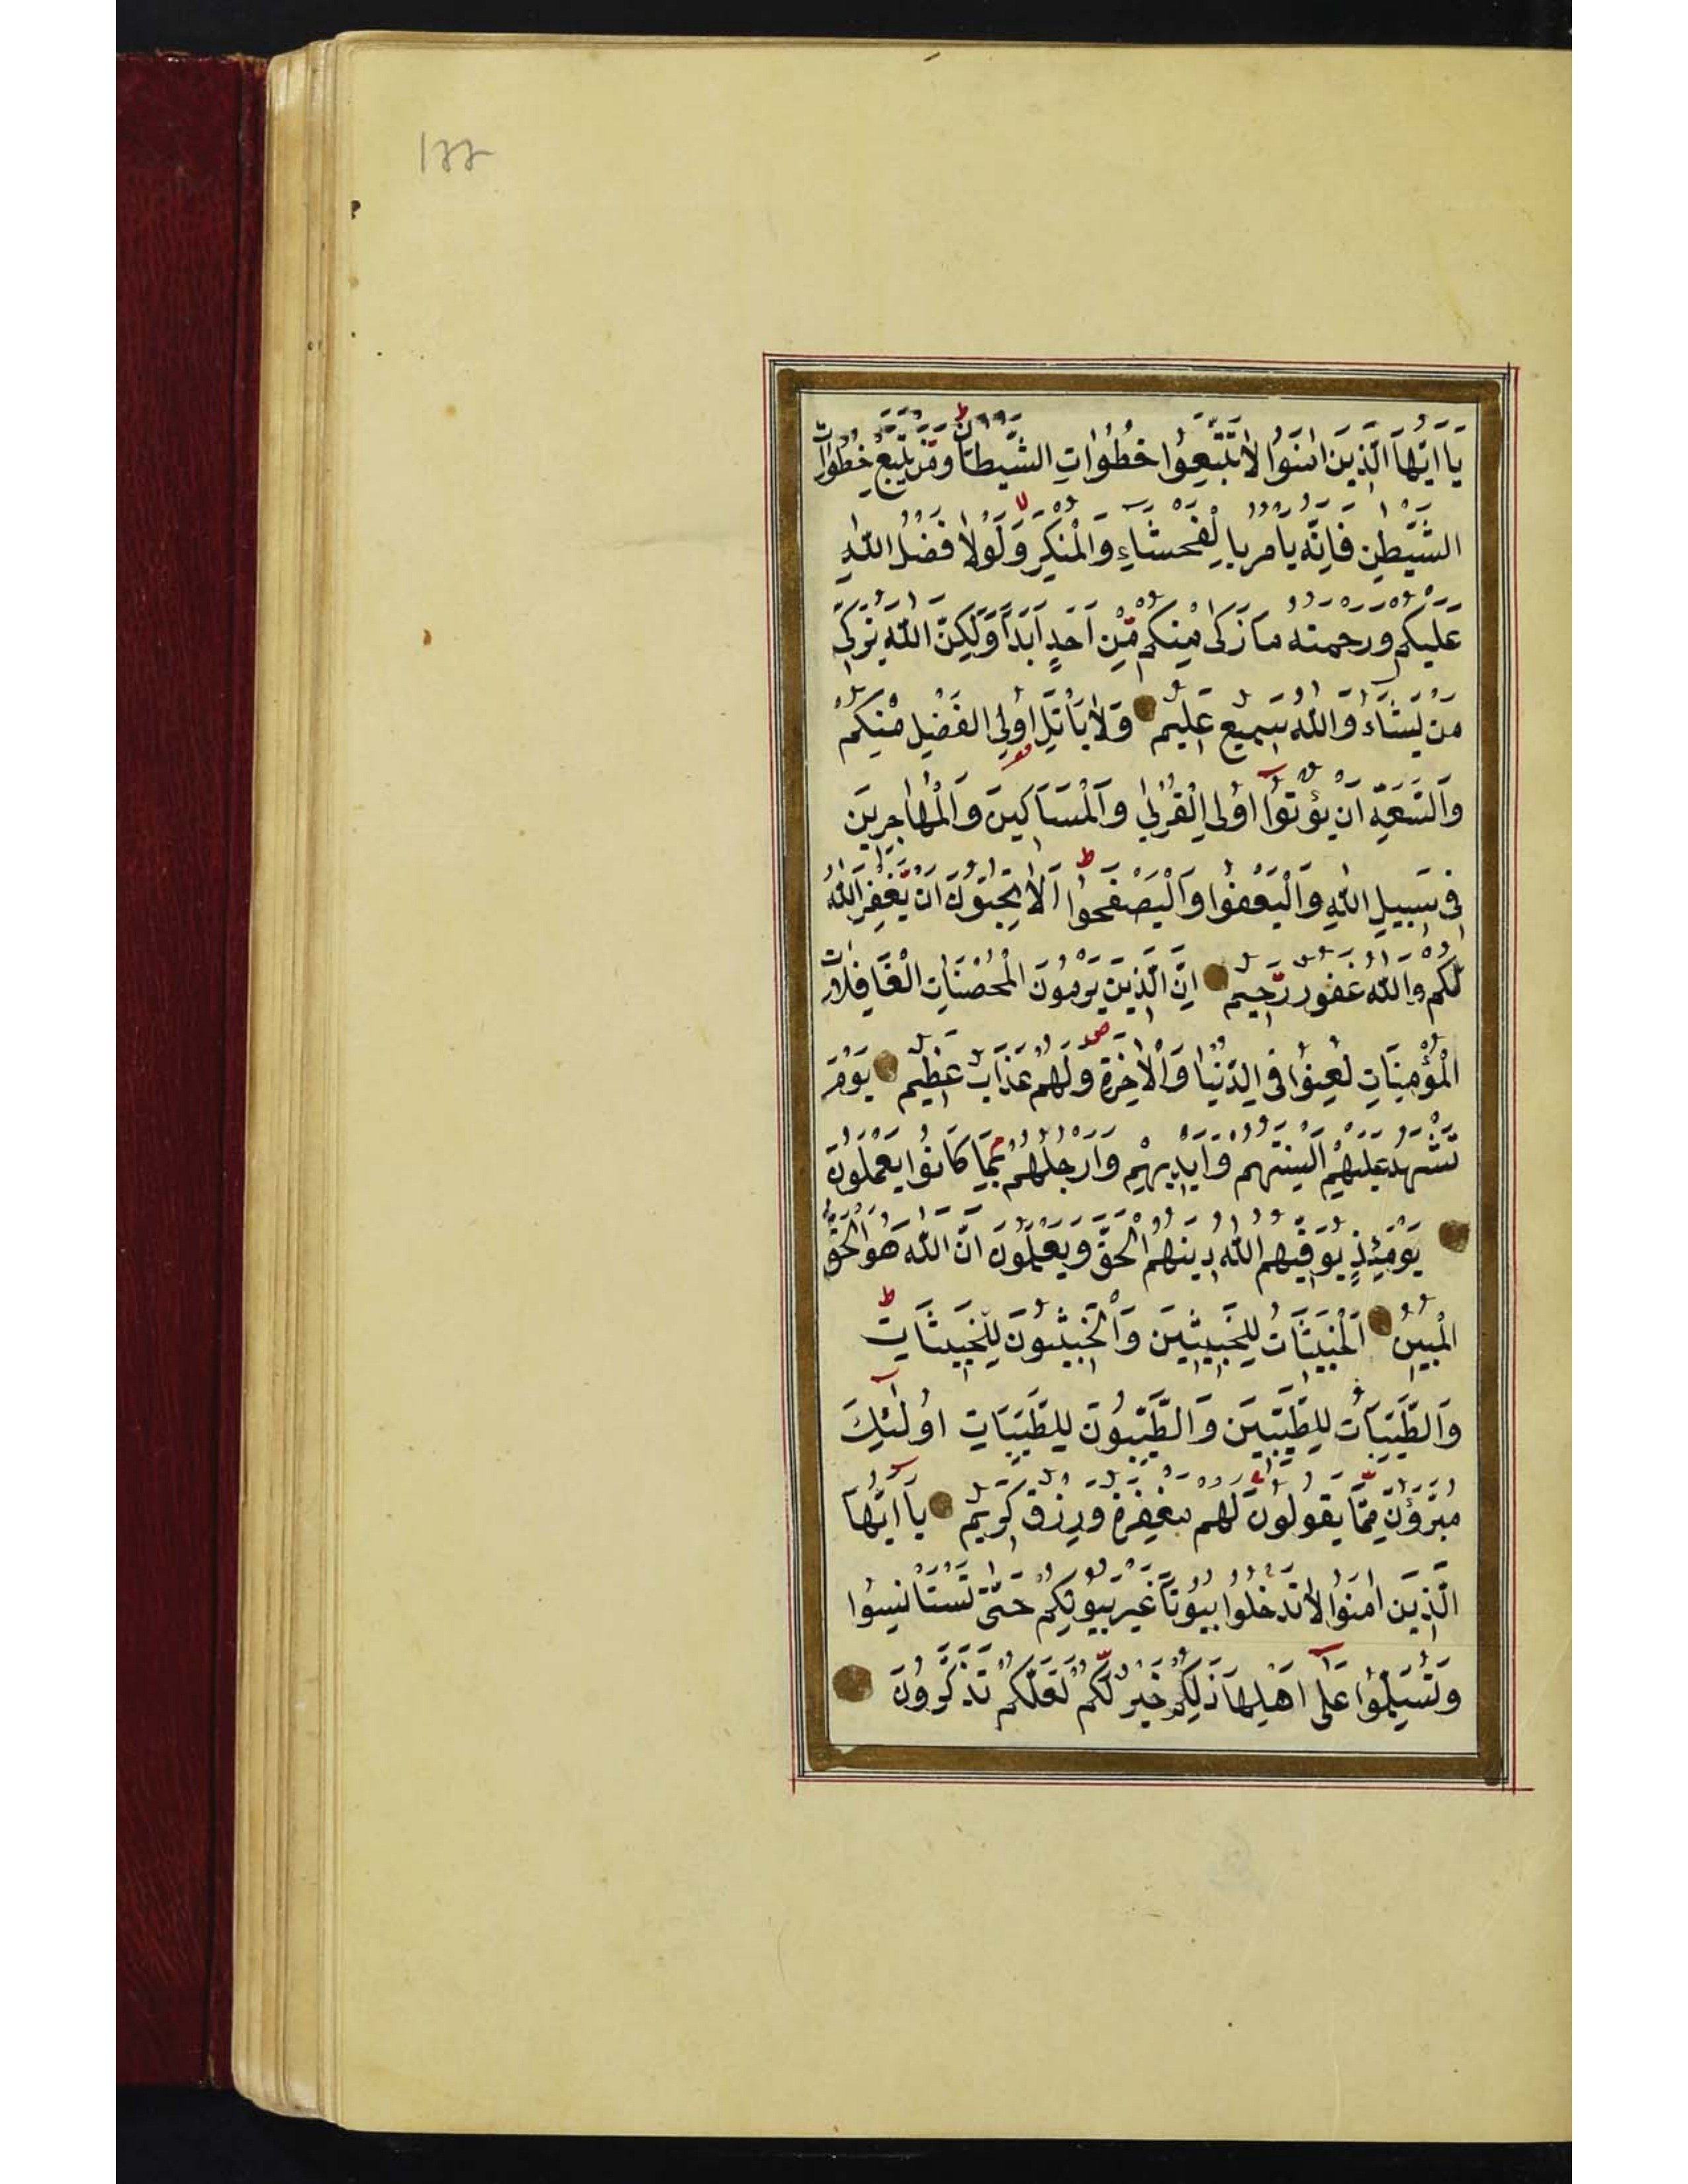 ١٢٢
يَا اَيُّهَا الَّذِينَ اٰمَنُوا لَا تَتَّبِعُوا خُطُوَاتِ الشَّيْطَانِ وَمَنْ يَتَّبِعْ خُطُوَاتِ
الشَّيْطٰنِ فَاِنَّهُ يَاْمُرُ بِالْفَحْشَاءِ وَالْمُنْكَرِ وَلَوْلَا فَضْلُ اللّٰهِ
عَلَيْكُمْ وَرَحْمَتُهُ مَا زَكٰى مِنْكُمْ مِنْ اَحَدٍ اَبَدًا وَلٰكِنَّ اللّٰهَ يُزَكِّى
مَنْ يَشَاءُ وَاللّٰهُ سَمِيعٌ عَلِيمٌ وَلَا يَاْتَلِ اُولُوا الْفَضْلِ مِنْكُمْ
وَالسَّعَةِ اَنْ يُؤْتُوا اُولِى الْقُرْبٰى وَالْمَسَاكِينَ وَالْمُهَاجِرِينَ
فِى سَبِيلِ اللّٰهِ وَالْيَعْفُوا وَالْيَصْفَحُوا اَلَا تُحِبُّونَ اَنْ يَغْفِرَ اللّٰهُ
لَكُمْ وَاللّٰهُ غَفُورٌ رَحِيمٌ اِنَّ الَّذِينَ يَرْمُونَ الْمُحْصَنَاتِ الْغَافِلَاتِ
الْمُؤْمِنَاتِ لُعِنُوا فِى الدُّنْيَا وَالْاٰخِرَةِ وَلَهُمْ عَذَابٌ عَظِيمٌ يَوْمَ
تَشْهَدُ عَلَيْهِمْ اَلْسِنَتُهُمْ وَاَيْدِيهِمْ وَاَرْجُلُهُمْ بِمَا كَانُوا يَعْمَلُونَ
يَوْمَئِذٍ يُوَفِّيهِمُ اللّٰهُ دِينَهُمُ الْحَقَّ وَيَعْلَمُونَ اَنَّ اللّٰهَ هُوَ الْحَقُّ
الْمُبِينُ اَلْخَبِيثَاتُ لِلْخَبِيثِينَ وَالْخَبِيثُونَ لِلْخَبِيثَاتِ
وَالطَّيِّبَاتُ لِلطَّيِّبِينَ وَالطَّيِّبُونَ لِلطَّيِّبَاتِ اُولٰئِكَ
مُبَرَّؤُنَ مِمَّا يَقُولُونَ لَهُمْ مَغْفِرَةٌ وَرِزْقٌ كَرِيمٌ يَا اَيُّهَا
الَّذِينَ اٰمَنُوا لَا تَدْخُلُوا بُيُوتًا غَيْرَ بُيُوتِكُمْ حَتّٰى تَسْتَانِسُوا
وَتُسَلِّمُوا عَلٰى اَهْلِهَا ذٰلِكُمْ خَيْرٌ لَكُمْ لَعَلَّكُمْ تَذَكَّرُونَ